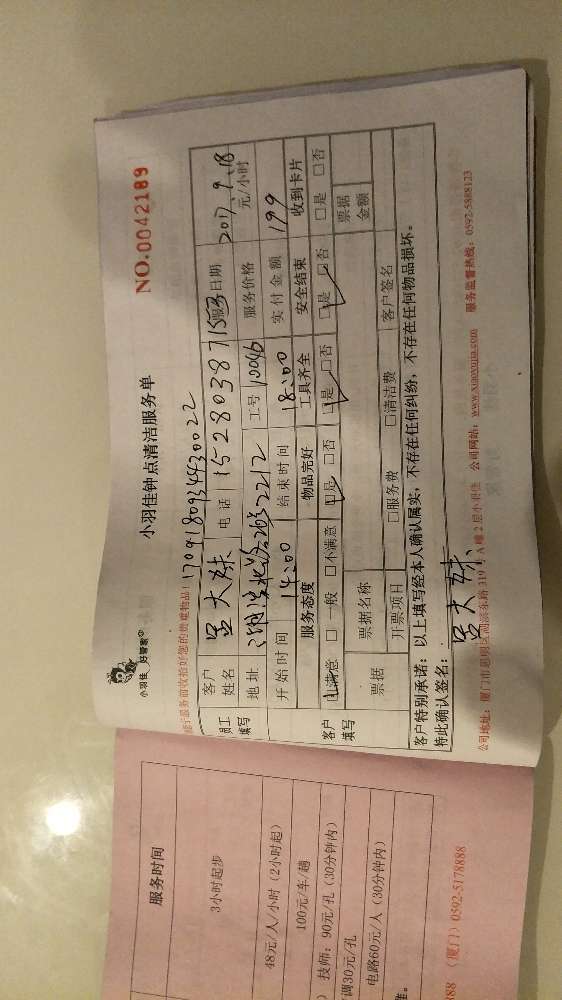 小羽佳 好管家
小羽佳钟点清洁服务单
NO.0042189
服务前收拾好您的贵重物品! 1709180934430022
员工填写 客户姓名 吕大妹 电话 15280387153 服务日期 2017.9.18
地址 2212 工号 10046 服务价格 元/小时
开始时间 14:00 结束时间 18:00 实付金额 199
客户填写 服务态度 物品完好 工具齐全 安全结束 收到卡片
☑满意 □一般 □不满意 ☑是 □否 ☑是 □否 ☑是 □否 □是 □否
票据 票据名称 票据金额
开票项目 □服务费 □清洁费 客户签名
客户特别承诺:以上填写经本人确认属实,不存在任何纠纷,不存在任何物品损坏。
特此确认签名: 吕大妹
公司地址:厦门市思明区湖滨东路319号A幢2层小羽佳 公司网站:www.xiaoyujia.com 服务监督热线:0592-5888123
服务时间
3小时起步
48元/人/小时(2小时起)
100元/车/趟
技师:90元/孔(30分钟内)
调30元/孔
电路60元/人(30分钟内)
888 (厦门)0592-5178888